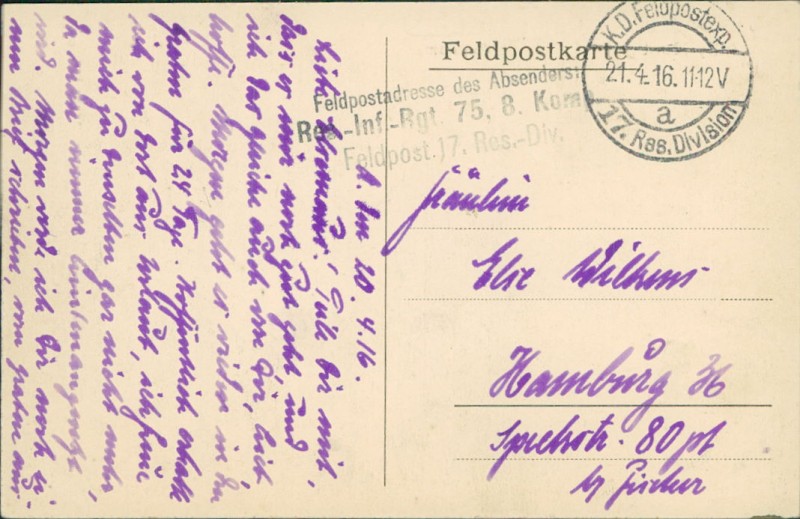 Feldpostkarte
K.D. Feldpostexp.
21.4.16.11-12V
a
17. Res. Division
Feldpostadresse des Absenders:
Res.-Inf.-Rgt. 75, 8. Komp.
Feldpost. 17. Res.-Div.
Fräulein
Else Wilkens
Hamburg 36
80 pt
by Fischer
den 20.4.16.
Teile Dir mit,
daß es mir noch gut geht und
ich das gleiche auch von Dir, lieb
hoffe. Morgen geht es wieder in den
Graben für 24 Tage. Hoffentlich erhalte
ich von dort aus Urlaub, ich freue
mich zu denselben gar nicht mehr
da man immer
wird. Morgen werde ich Dir noch
nen Brief schreiben, vom Graben aus